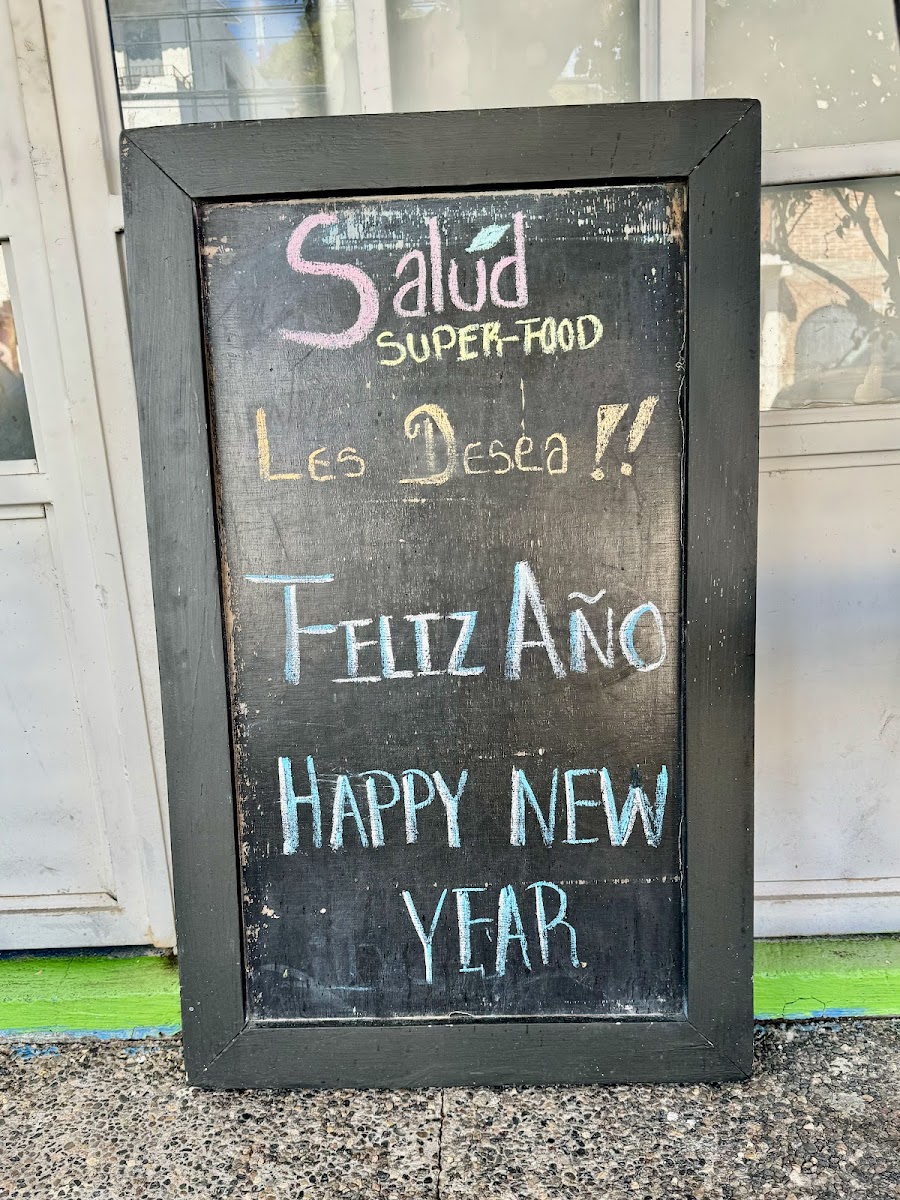 Salud
SUPER-FOOD
Les Desea!!
FELIZ AÑO
HAPPY NEW
YEAR